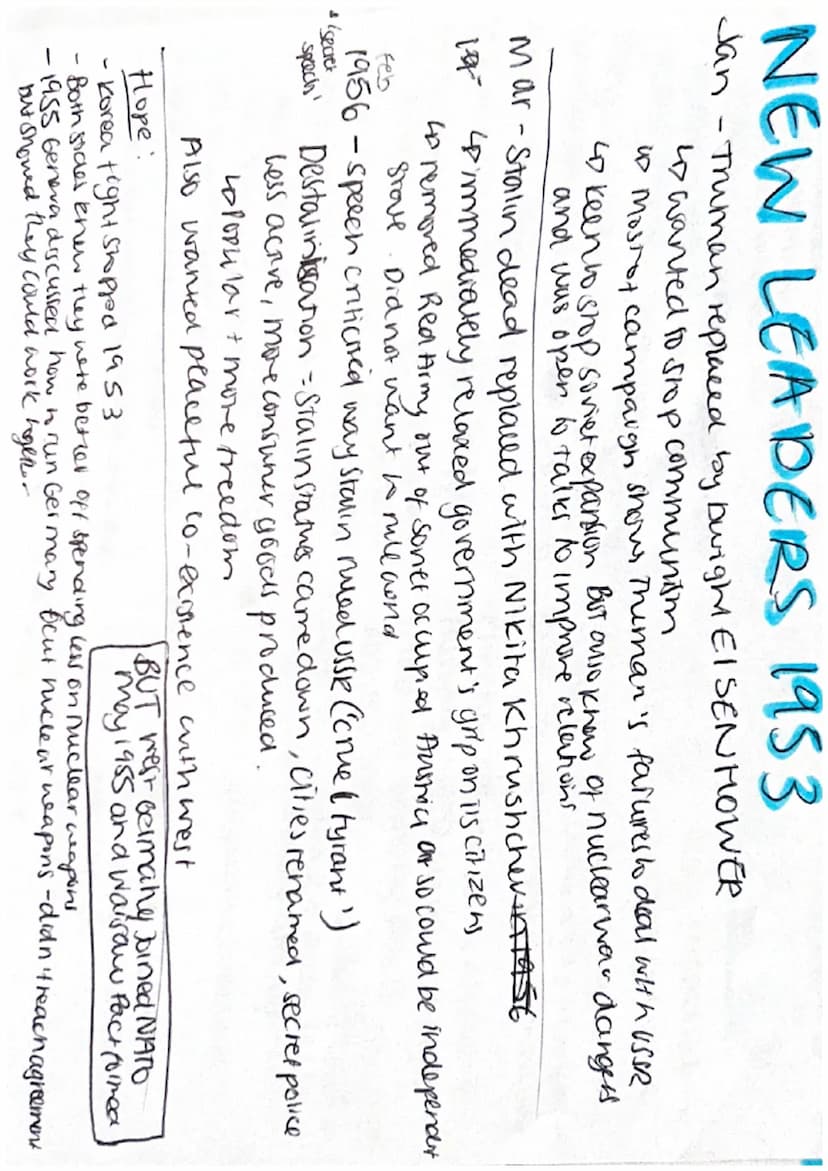 NEW LEADERS 1953
Jan - Truman replaced by Dwight EISENHOWER
↳ wanted to stop communism
↳ Most of campaign shows Truman's failures to deal with USSR
↳ keen to stop soviet expansion But also knew of nuclear war dangers
and was open to talks to improve relations
Mar - Stalin dead replaced with Nikita Khrushchev
↳ immediately relaxed government's grip on its citizens
↳ removed Red Army out of soviet occupied Austria so could be independent
state. Did not want to rule world
Feb
1956 - speech criticised way Stalin ruled USSR ('cruel tyrant')
'secret
speech'
Destalinisation = Stalin statues came down, cities renamed, secret police
less active, more consumer goods produced.
↳ Popular + more freedom
Also wanted peaceful co-existence with west
Hope:
- Korea fight stopped 1953
- Both sides knew they were better off spending less on nuclear weapons
- 1955 Geneva discussed how to run Germany & cut nuclear weapons - didn't reach agreement
but showed they could work together.
BUT West Germany joined NATO
May 1955 and Warsaw Pact formed